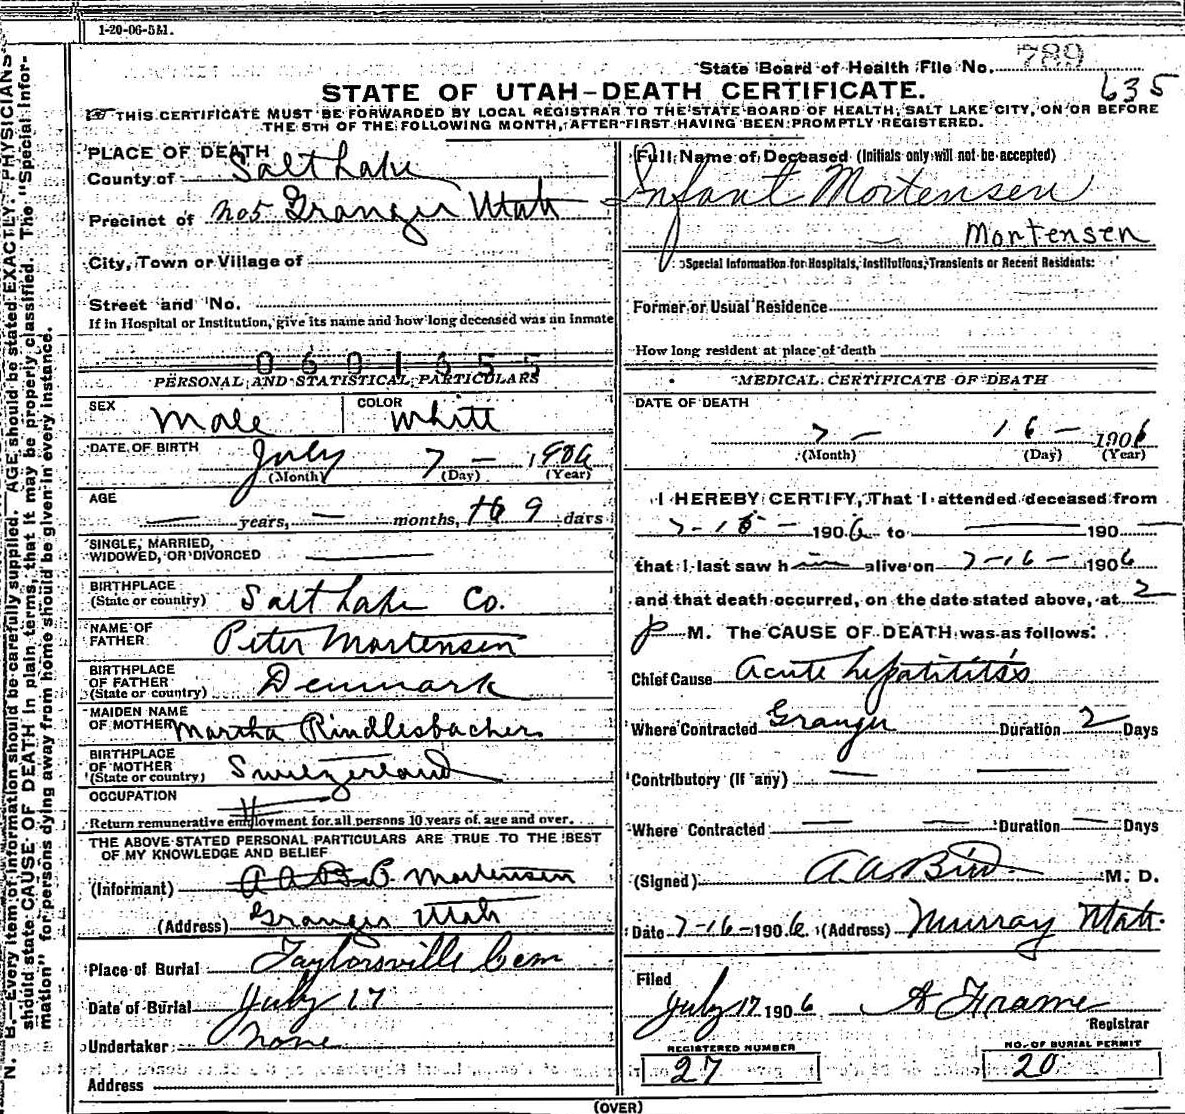 1-20-06-5M.
State Board of Health File No. 789
635
STATE OF UTAH-DEATH CERTIFICATE.
THIS CERTIFICATE MUST BE FORWARDED BY LOCAL REGISTRAR TO THE STATE BOARD OF HEALTH, SALT LAKE CITY, ON OR BEFORE
THE 5TH OF THE FOLLOWING MONTH, AFTER FIRST HAVING BEEN PROMPTLY REGISTERED.
N. B.—Every item of information should be carefully supplied. AGE should be stated EXACTLY. PHYSICIANS
should state CAUSE OF DEATH in plain terms, that it may be properly classified. The "Special Infor-
mation" for persons dying away from home should be given in every instance.
PLACE OF DEATH
County of Salt Lake
Precinct of No 5 Granger Utah
City, Town or Village of
Street and No.
If in Hospital or Institution, give its name and how long deceased was an inmate
0601355
PERSONAL AND STATISTICAL PARTICULARS
SEX Male COLOR White
DATE OF BIRTH July 7 - 1906
(Month) (Day) (Year)
AGE
— years, — months, 9 days
SINGLE, MARRIED,
WIDOWED, OR DIVORCED
BIRTHPLACE
(State or country) Salt Lake Co.
NAME OF
FATHER Peter Mortensen
BIRTHPLACE
OF FATHER
(State or country) Denmark
MAIDEN NAME
OF MOTHER Martha Rindlesbacher
BIRTHPLACE
OF MOTHER
(State or country) Switzerland
OCCUPATION
Return remunerative employment for all persons 10 years of age and over.
THE ABOVE STATED PERSONAL PARTICULARS ARE TRUE TO THE BEST
OF MY KNOWLEDGE AND BELIEF
(Informant) Mortensen
(Address) Granger Utah
Place of Burial Taylorsville Cem
Date of Burial July 17
Undertaker None
Address
Full Name of Deceased (Initials only will not be accepted)
Infant Mortensen
Mortensen
Special Information for Hospitals, Institutions, Transients or Recent Residents:
Former or Usual Residence
How long resident at place of death
MEDICAL CERTIFICATE OF DEATH
DATE OF DEATH
7 — 16 — 1906
(Month) (Day) (Year)
I HEREBY CERTIFY, That I attended deceased from
7-15- 1906 to — 190
that I last saw him alive on 7-16- 1906
and that death occurred, on the date stated above, at 2
p M. The CAUSE OF DEATH was as follows:
Chief Cause Acute hepatititis
Where Contracted Granger Duration 2 Days
Contributory (If any) — —
Where Contracted — — Duration — Days
(Signed) A A Bird M. D.
Date 7-16-1906 (Address) Murray Utah.
Filed
July 17 1906 A Frame
Registrar
REGISTERED NUMBER
27
NO. OF BURIAL PERMIT
20
(OVER)